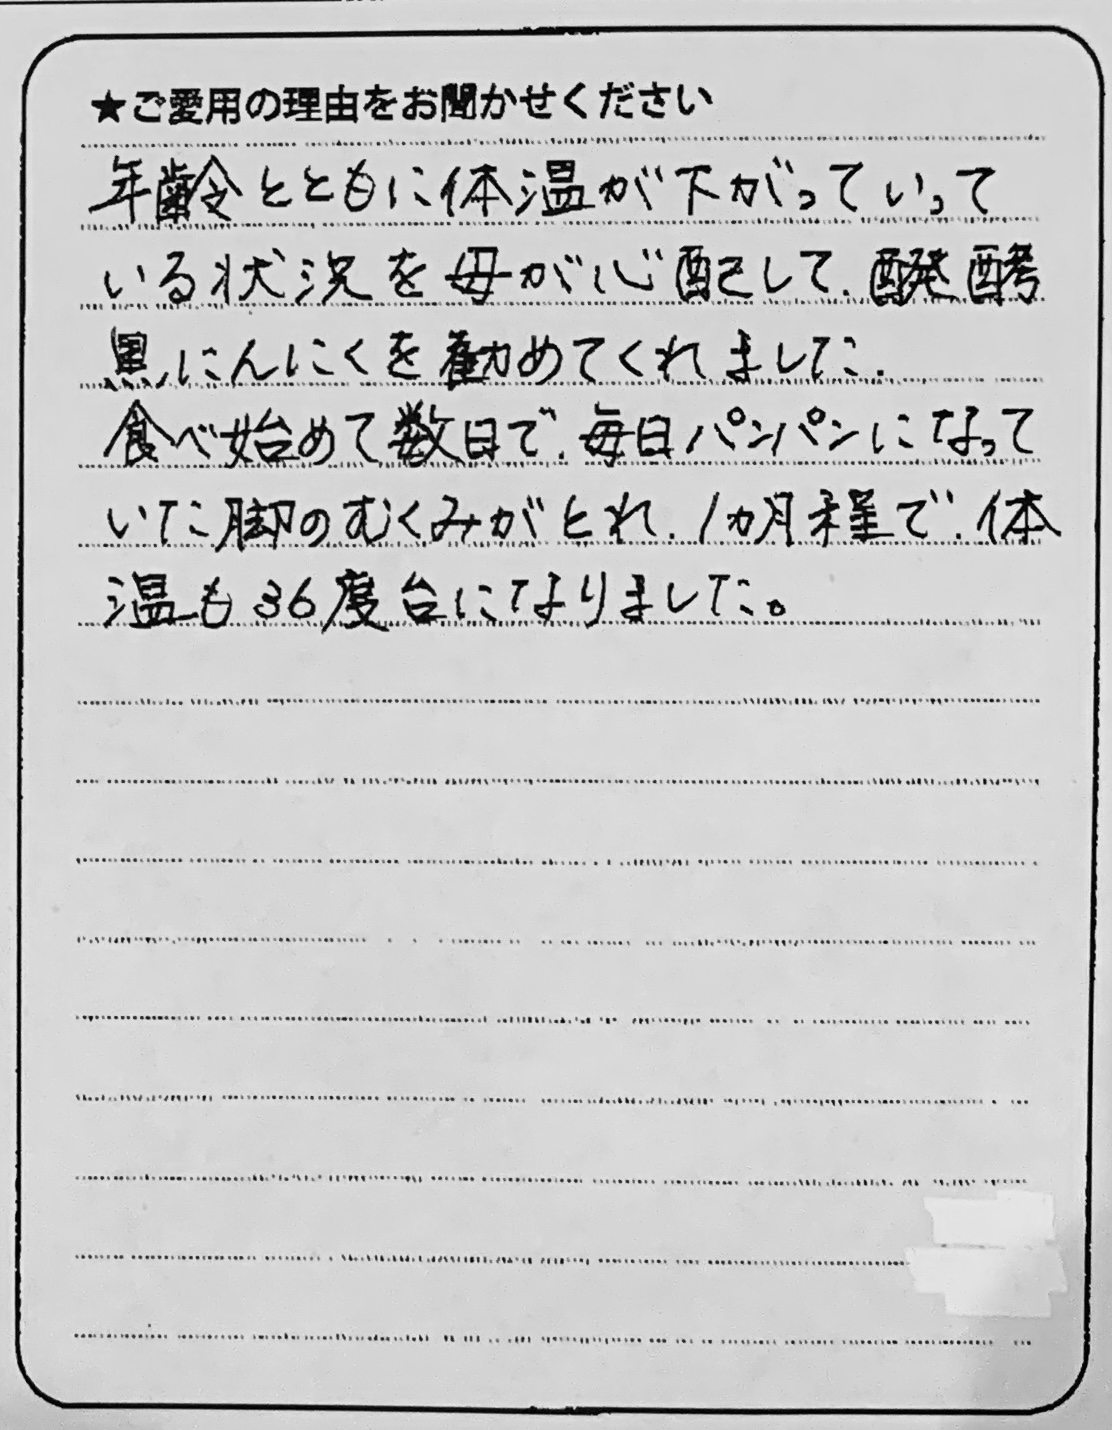 ★ご愛用の理由をお聞かせください
年齢とともに体温が下がっていって
いる状況を母が心配して、醗酵
黒にんにくを勧めてくれました.
食べ始めて数日で、毎日パンパンになって
いた脚のむくみがとれ、1ヵ月程で、体
温も36度台になりました。